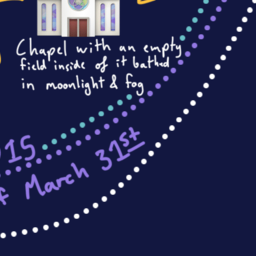 Chapel with an empty
field inside of it bathed
in moonlight & fog
15
March 31st